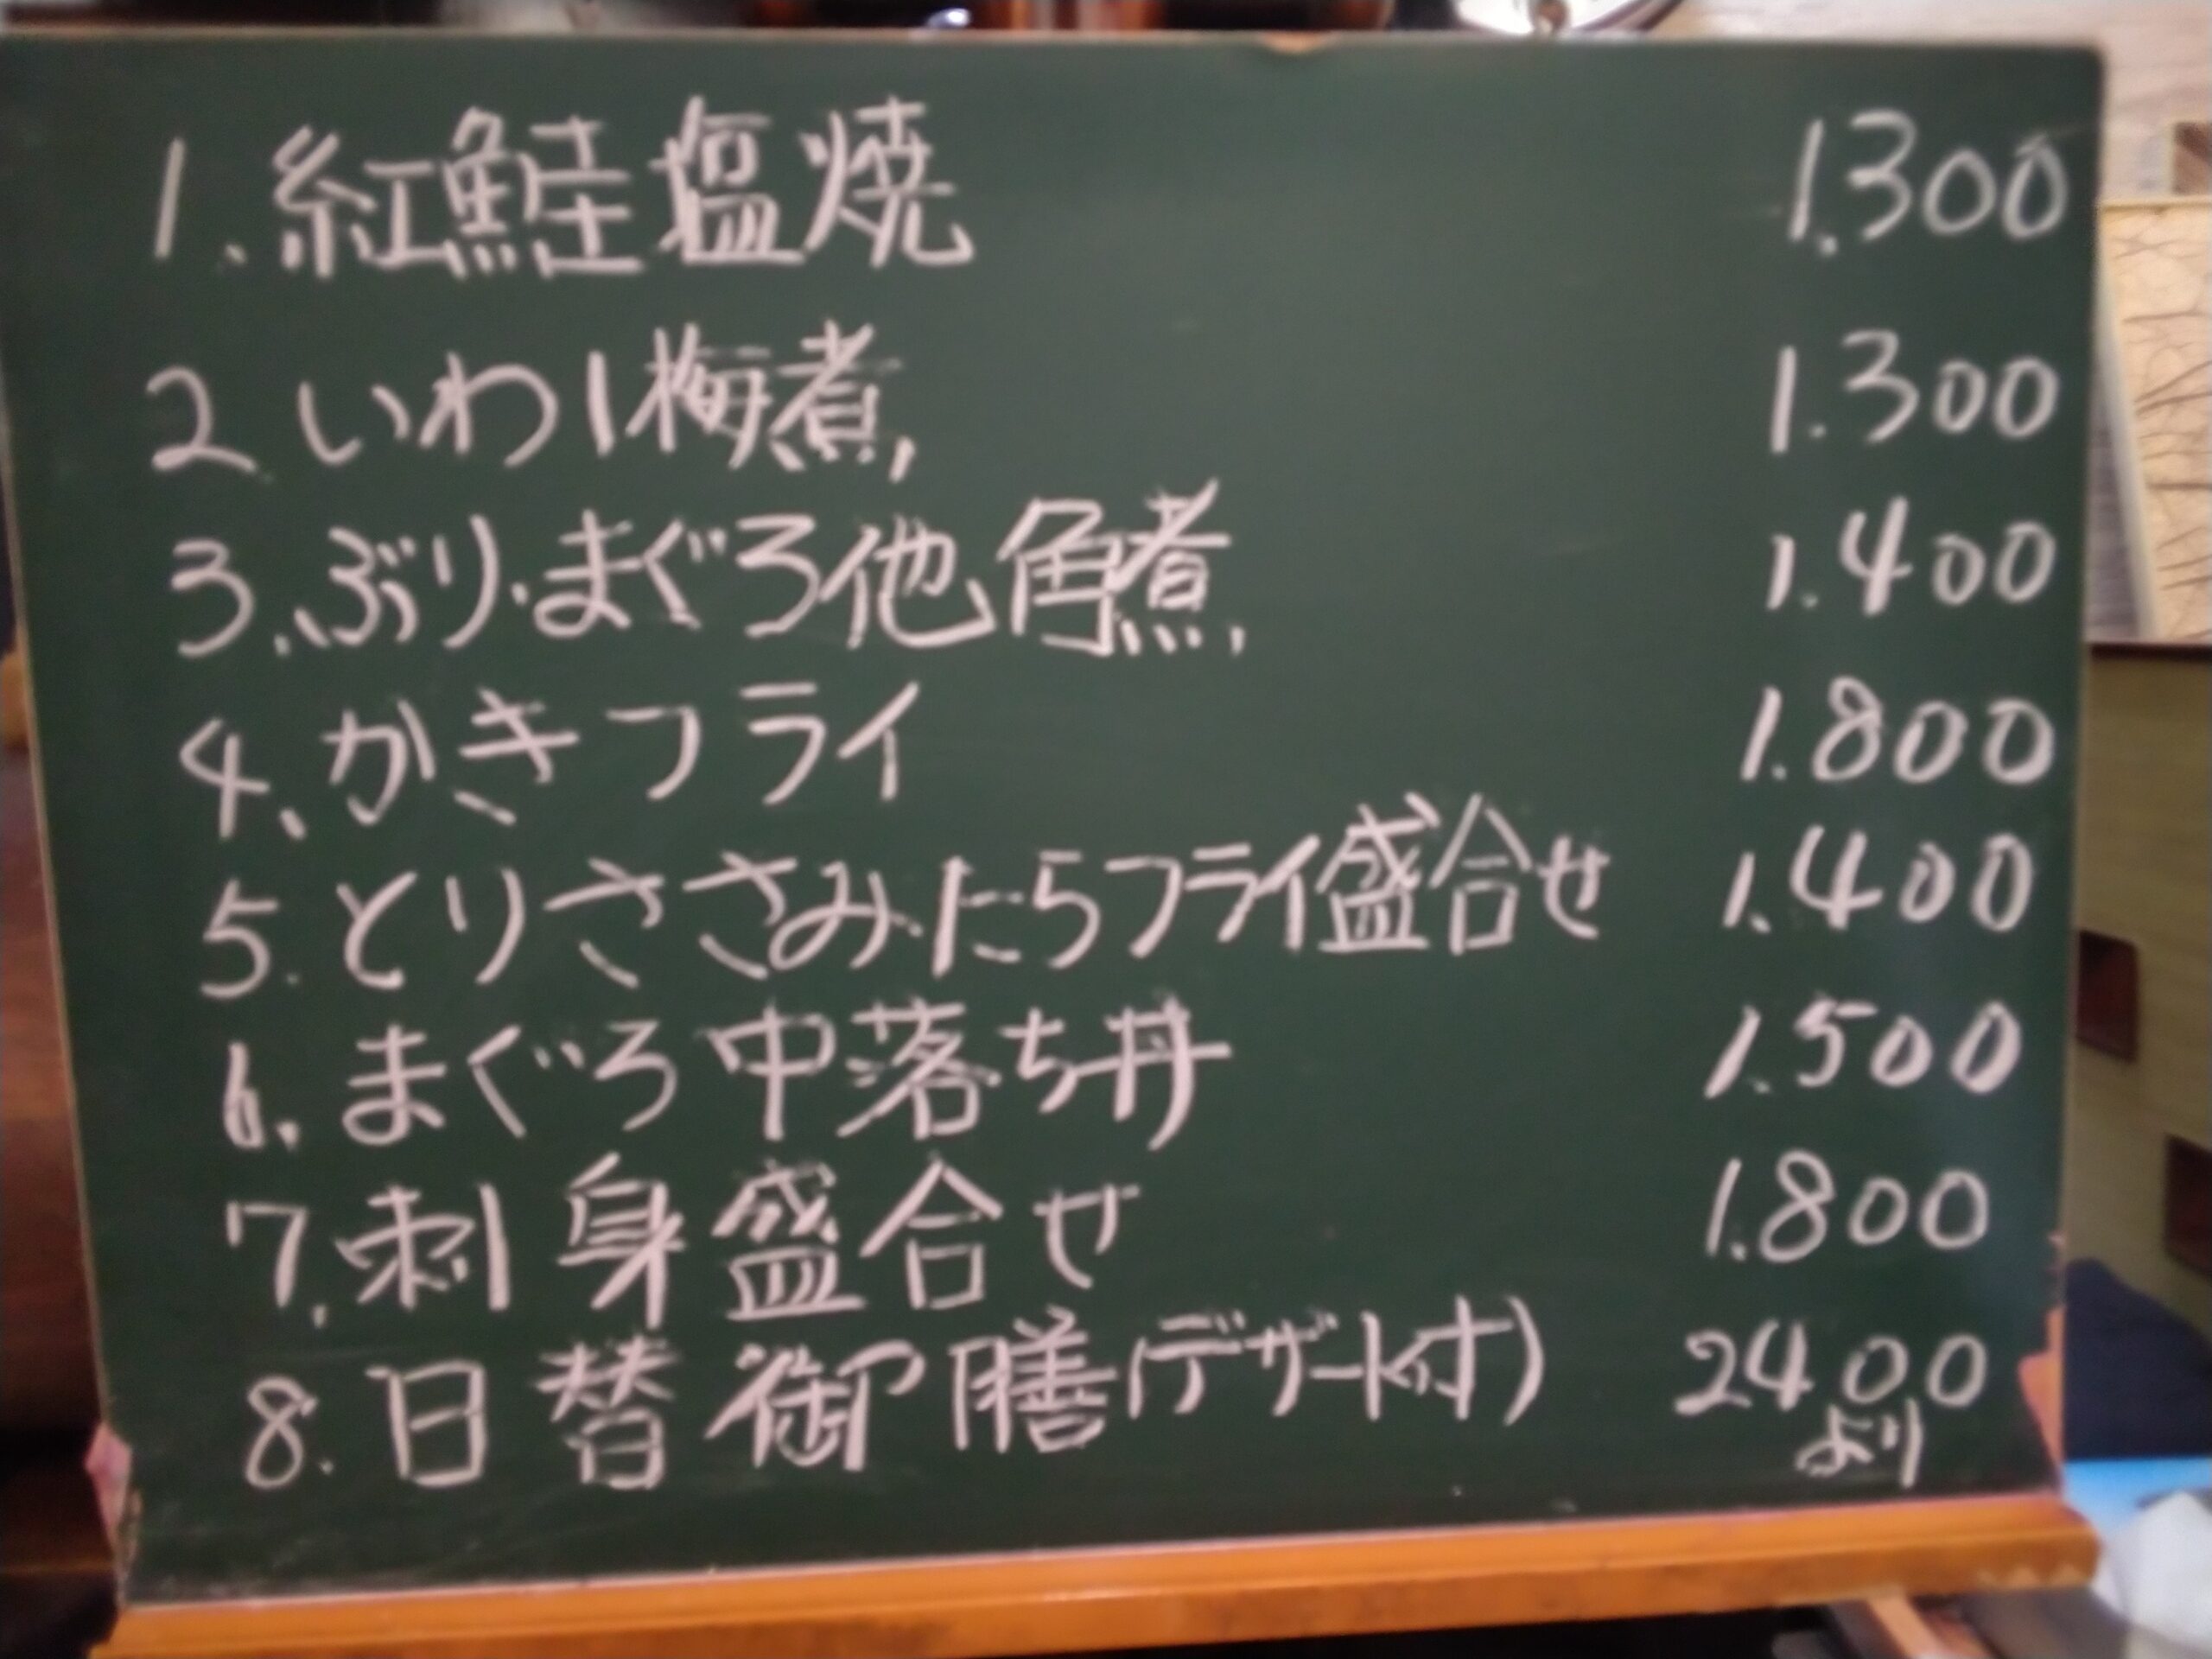 1.紅鮭塩焼 1.300
2.いわし梅煮, 1.300
3.ぶり・まぐろ他角煮, 1.400
4.かきフライ 1.800
5.とりささみ・たらフライ盛合せ 1.400
6.まぐろ中落ち丼 1.500
7.刺身盛合せ 1.800
8.日替御膳(デザート付) 2400
より